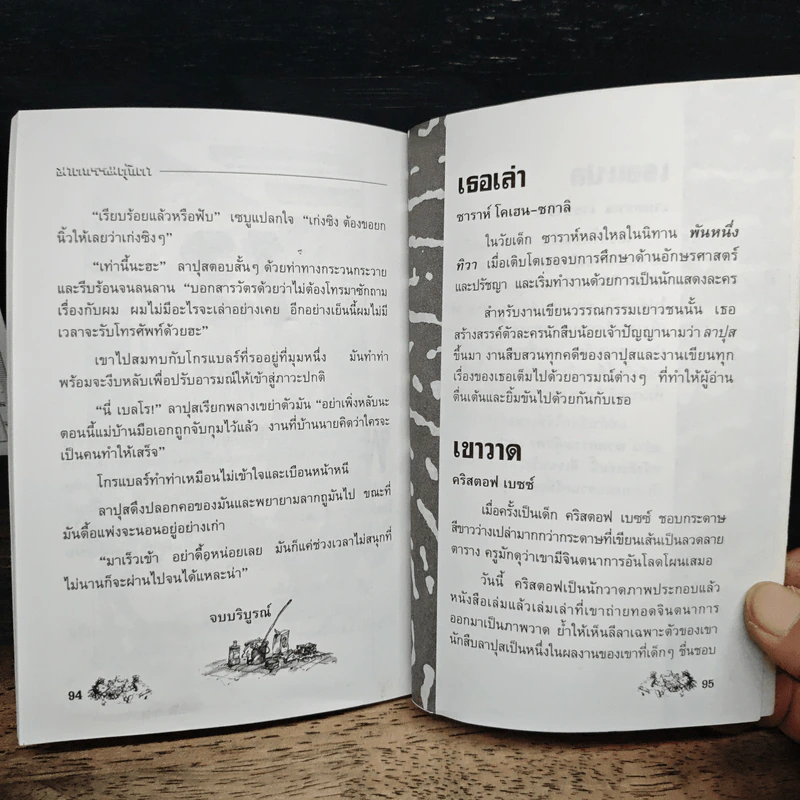 "เรียบร้อยแล้วหรือฟับ" เซบูแปลกใจ "เก่งซิง ต้องขอยก
นิ้วให้เลยว่าเก่งซิงๆ"
"เท่านี้นะฮะ" ลาปุสตอบสั้นๆ ด้วยท่าทางกระวนกระวาย
และรีบร้อนจนลนลาน "บอกสารวัตรด้วยว่าไม่ต้องโทรมาซักถาม
เรื่องกับผม ผมไม่มีอะไรจะเล่าอย่างเคย อีกอย่างเย็นนี้ผมไม่มี
เวลาจะรับโทรศัพท์ด้วยฮะ"
เขาไปสมทบกับโกรแบลร์ที่รออยู่ที่มุมหนึ่ง มันทำท่า
พร้อมจะงีบหลับเพื่อปรับอารมณ์ให้เข้าสู่ภาวะปกติ
"นี่ เบลโร!" ลาปุสเรียกพลางเขย่าตัวมัน "อย่าเพิ่งหลับนะ
ตอนนี้แม่บ้านมือเอกถูกจับกุมไว้แล้ว งานที่บ้านนายคิดว่าใครจะ
เป็นคนทำให้เสร็จ"
โกรแบลร์ทำท่าเหมือนไม่เข้าใจและเบือนหน้าหนี
ลาปุสดึงปลอกคอของมันและพยายามลากถูมันไป ขณะที่
มันดื้อแพ่งจะนอนอยู่อย่างเก่า
"มาเร็วเข้า อย่าดื้อหน่อยเลย มันก็แค่ช่วงเวลาไม่สนุกที่
ไม่นานก็จะผ่านไปจนได้แหละน่า"
จบบริบูรณ์
94
เธอเล่า
ซาราห์ โคเฮน-ซกาลิ
ในวัยเด็ก ซาราห์หลงใหลในนิทาน พันหนึ่ง
ทิวา เมื่อเติบโตเธอจบการศึกษาด้านอักษรศาสตร์
และปรัชญา และเริ่มทำงานด้วยการเป็นนักแสดงละคร
สำหรับงานเขียนวรรณกรรมเยาวชนนั้น เธอ
สร้างสรรค์ตัวละครนักสืบน้อยเจ้าปัญญานามว่า ลาปุส
ขึ้นมา งานสืบสวนทุกคดีของลาปุสและงานเขียนทุก
เรื่องของเธอเต็มไปด้วยอารมณ์ต่างๆ ที่ทำให้ผู้อ่าน
ตื่นเต้นและยิ้มขันไปด้วยกันกับเธอ
เขาวาด
คริสตอฟ เบซซ์
เมื่อครั้งเป็นเด็ก คริสตอฟ เบซซ์ ชอบกระดาษ
สีขาวว่างเปล่ามากกว่ากระดาษที่เขียนเส้นเป็นลวดลาย
ตาราง ครูมักดุว่าเขามีจินตนาการอันโลดโผนเสมอ
วันนี้ คริสตอฟเป็นนักวาดภาพประกอบแล้ว
หนังสือเล่มแล้วเล่มเล่าที่เขาถ่ายทอดจินตนาการ
ออกมาเป็นภาพวาด ย้ำให้เห็นลีลาเฉพาะตัวของเขา
นักสืบลาปุสเป็นหนึ่งในผลงานของเขาที่เด็กๆ ชื่นชอบ
95